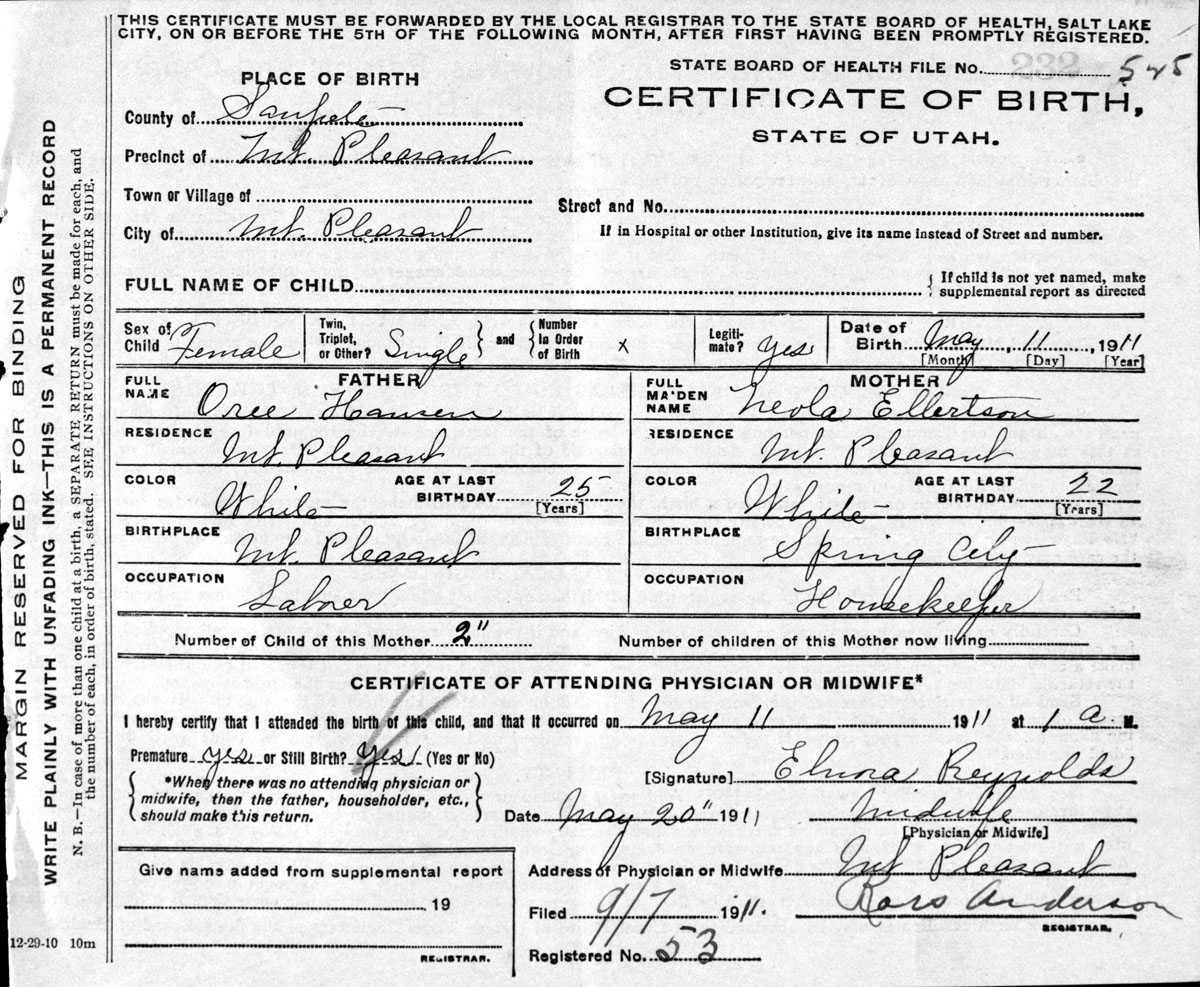 THIS CERTIFICATE MUST BE FORWARDED BY THE LOCAL REGISTRAR TO THE STATE BOARD OF HEALTH, SALT LAKE
CITY, ON OR BEFORE THE 5TH OF THE FOLLOWING MONTH, AFTER FIRST HAVING BEEN PROMPTLY REGISTERED.
MARGIN RESERVED FOR BINDING
WRITE PLAINLY WITH UNFADING INK—THIS IS A PERMANENT RECORD
N. B.—In case of more than one child at a birth, a SEPARATE RETURN must be made for each, and
the number of each, in order of birth, stated. SEE INSTRUCTIONS ON OTHER SIDE.
STATE BOARD OF HEALTH FILE No. 545
CERTIFICATE OF BIRTH,
STATE OF UTAH.
PLACE OF BIRTH
County of Sanpete
Precinct of Mt. Pleasant
Town or Village of
City of Mt. Pleasant
Street and No.
If in Hospital or other Institution, give its name instead of Street and number.
FULL NAME OF CHILD
{ If child is not yet named, make
supplemental report as directed
Sex of Child Female
Twin, Triplet, or Other? Single } and { Number In Order of Birth x
Legiti-mate? yes
Date of Birth May 11, 1911
[Month] [Day] [Year]
FATHER
FULL NAME Oree Hansen
RESIDENCE Mt. Pleasant
COLOR White AGE AT LAST BIRTHDAY 25
[Years]
BIRTHPLACE Mt. Pleasant
OCCUPATION Laborer
MOTHER
FULL MAIDEN NAME Neola Ellertson
RESIDENCE Mt. Pleasant
COLOR White AGE AT LAST BIRTHDAY 22
[Years]
BIRTHPLACE Spring City
OCCUPATION Housekeeper
Number of Child of this Mother 2" Number of children of this Mother now living
CERTIFICATE OF ATTENDING PHYSICIAN OR MIDWIFE*
I hereby certify that I attended the birth of this child, and that it occurred on May 11 1911 at 1 a M.
Premature yes or Still Birth? Yes (Yes or No)
{ *When there was no attending physician or
midwife, then the father, householder, etc.,
should make this return. }
[Signature] Elnora Reynolds
Date May 20" 1911 Midwife
[Physician or Midwife]
Address of Physician or Midwife Mt Pleasant
Filed 9/7 1911. Anderson
REGISTRAR.
Registered No. 53
Give name added from supplemental report
, 19
REGISTRAR.
12-29-10 10m